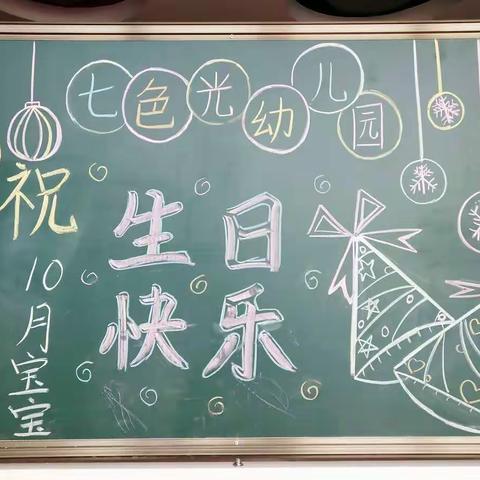 七色光幼儿园
祝
10月宝宝
生日
快乐